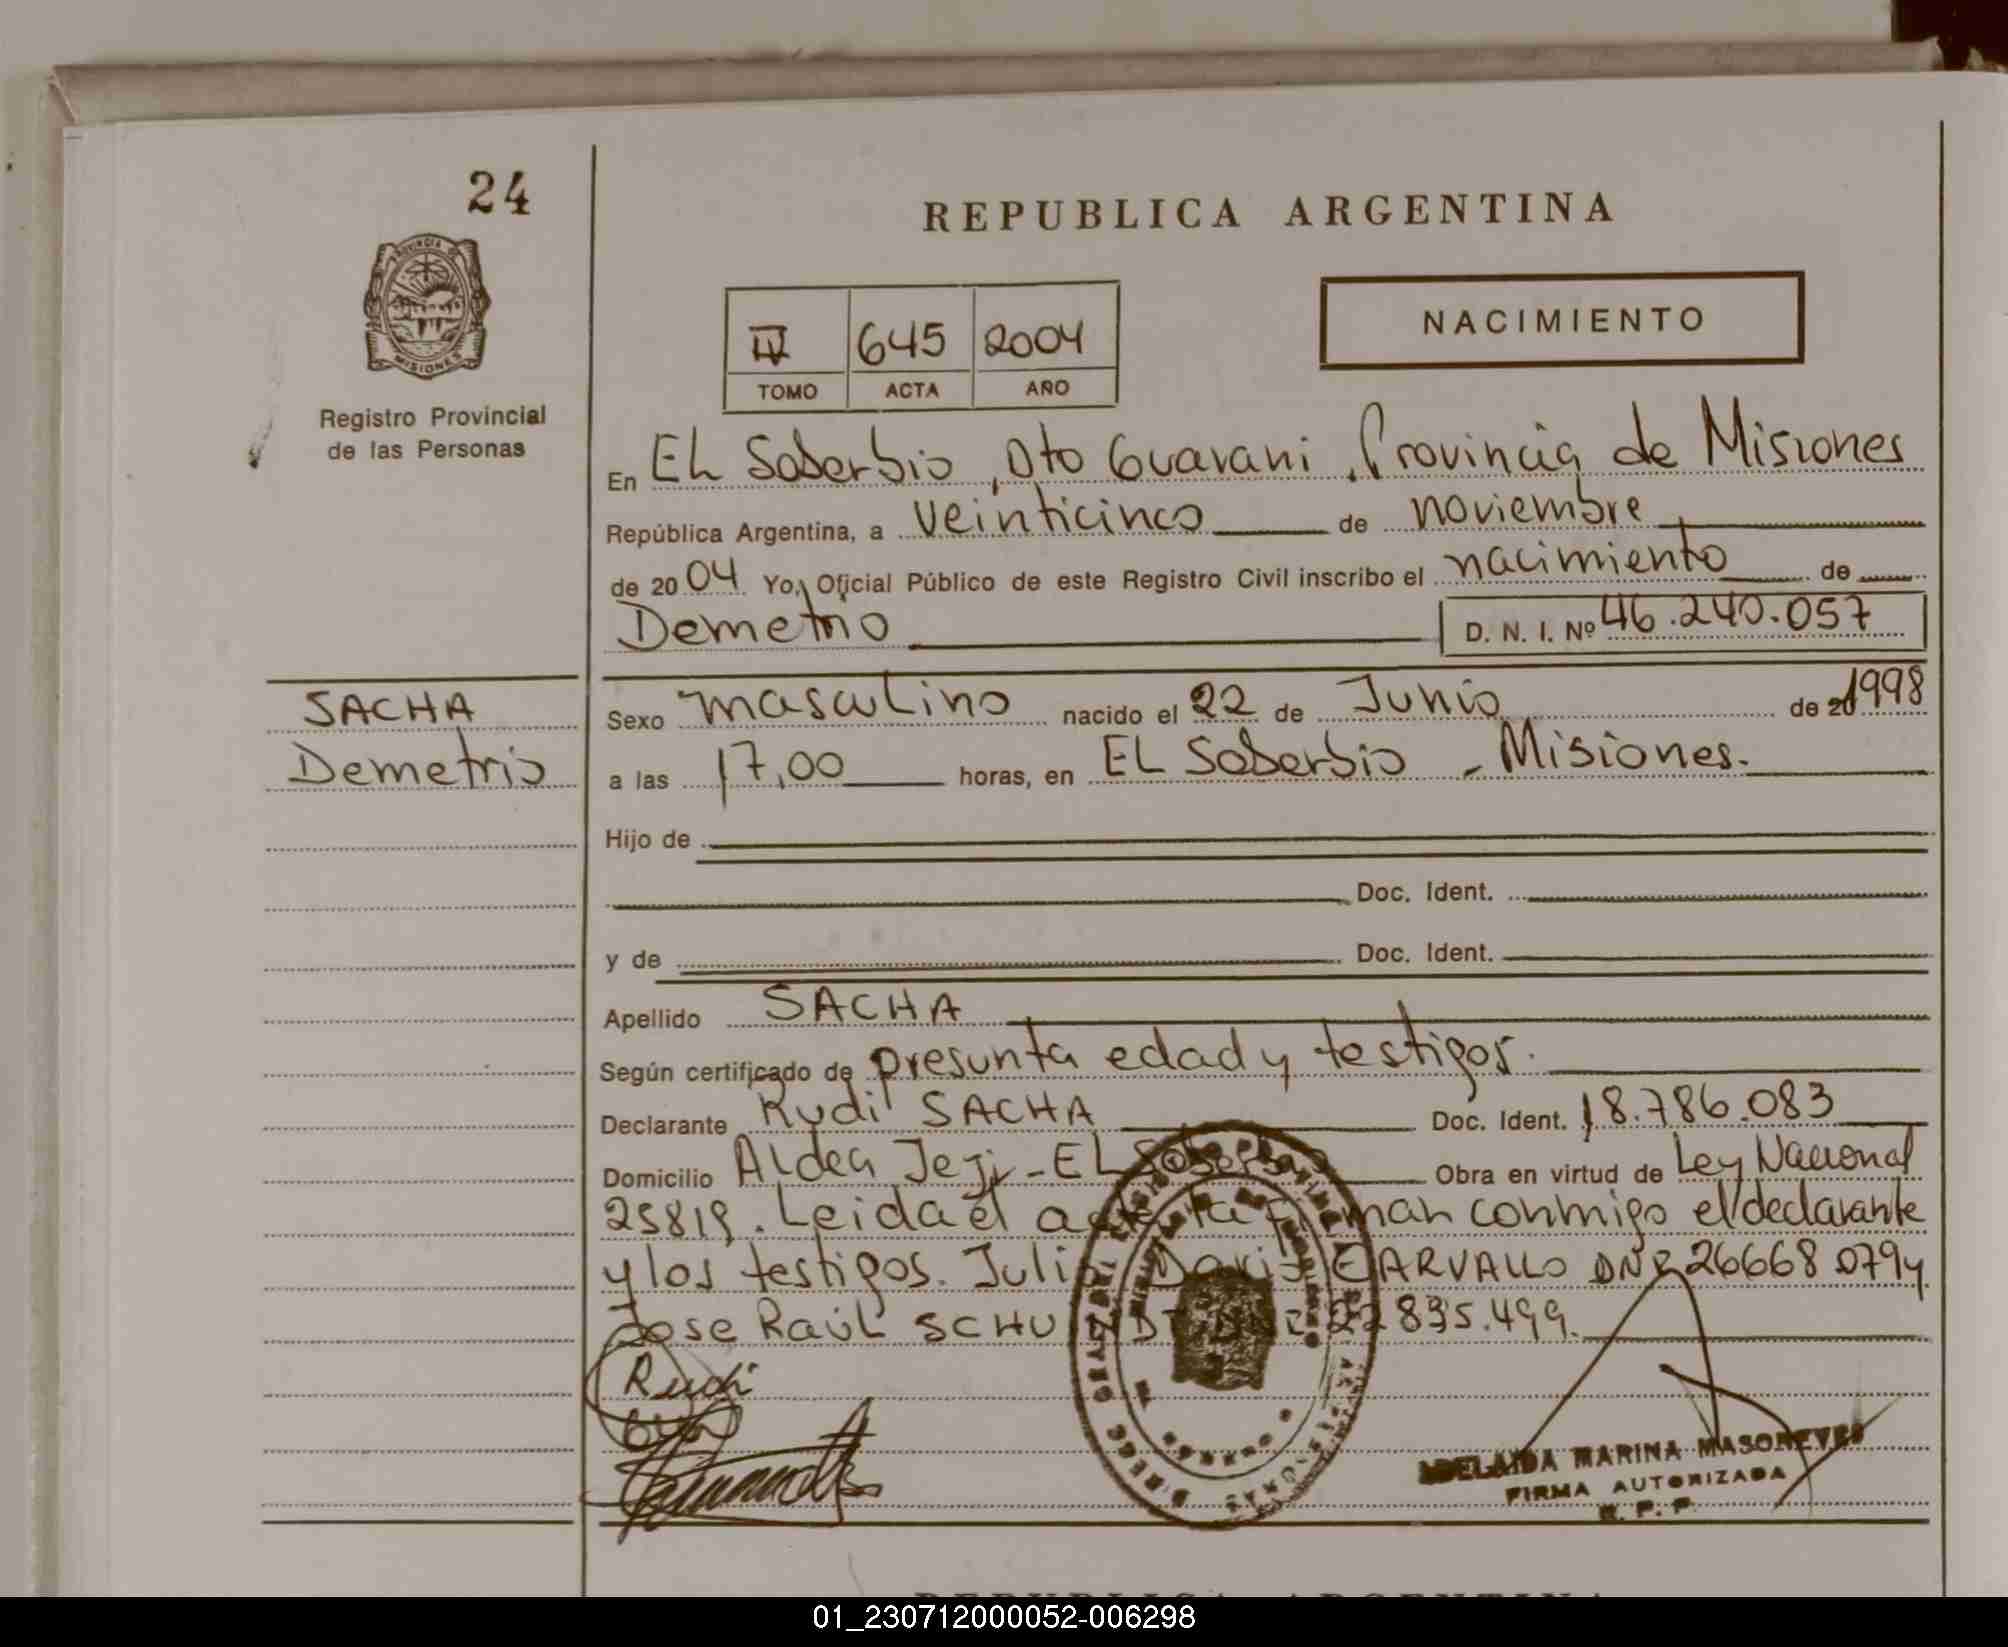 24
REPUBLICA ARGENTINA
PROVINCIA DE
MISIONES
Registro Provincial
de las Personas
IV 645 2004
TOMO ACTA AÑO
NACIMIENTO
En EL Soberbio, Dto Guarani, Provincia de Misiones
República Argentina, a veinticinco de noviembre
de 2004 Yo, Oficial Público de este Registro Civil inscribo el nacimiento de
Demetrio D. N. I. Nº 46.240.057
SACHA
Demetrio
Sexo masculino nacido el 22 de Junio de 20 1998
a las 17,00 horas, en EL Soberbio - Misiones.
Hijo de
Doc. Ident.
y de Doc. Ident.
Apellido SACHA
Según certificado de presunta edad y testigos.
Declarante Rudi SACHA Doc. Ident. 18.786.083
Domicilio Aldea Jeji - EL Soberbio Obra en virtud de Ley Nacional
25819. Leida el acta la firman conmigo el declarante
y los testigos. Julio Dario CARVALLO DNI 26668079 y
Jose Raúl 22835.499.
Rudi
ADELAIDA MARINA MASONEVES
FIRMA AUTORIZADA
R. P. P.
REPUBLICA ARGENTINA
01_230712000052-006298